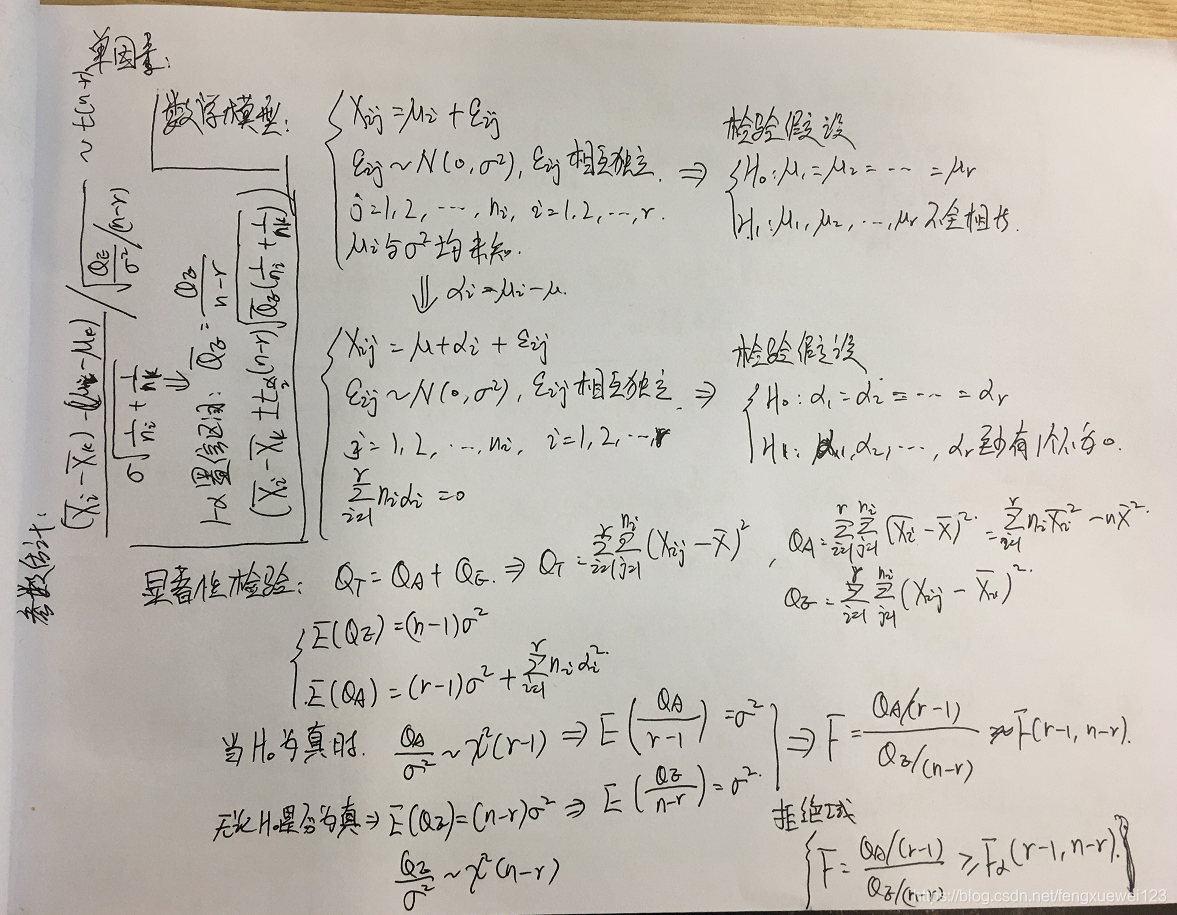 单因素:
数学模型:
X_ij = μ_i + ε_ij
ε_ij ~ N(0, σ²), ε_ij 相互独立. ⇒
j=1, 2, ⋯, n_i, i=1, 2, ⋯, r.
μ_i 与 σ² 均未知.
检验假设
H₀: μ₁ = μ₂ = ⋯ = μ_r
H₁: μ₁, μ₂, ⋯, μ_r 不全相等.
⇓ α_i = μ_i − μ.
X_ij = μ + α_i + ε_ij
ε_ij ~ N(0, σ²), ε_ij 相互独立. ⇒
j = 1, 2, ⋯, n_i, i = 1, 2, ⋯, r
∑_{i=1}^{r} n_i α_i = 0
检验假设
H₀: α₁ = α₂ = ⋯ = α_r
H₁: α₁, α₂, ⋯, α_r 至少有1个不为0.
参数估计:
(X̄_i − X̄_k) − (μ_i − μ_k) / σ√(1/n_i + 1/n_k) / √(Q_E/σ² /(n−r)) ~ t(n−r)
⇓
1−α 置信区间: Q̄_E = Q_E/(n−r)
(X̄_i − X̄_k ± t_{α/2}(n−r) √(Q̄_E(1/n_i + 1/n_k)))
显著性检验: Q_T = Q_A + Q_E. ⇒ Q_T = ∑_{i=1}^{r} ∑_{j=1}^{n_i} (X_ij − X̄)², Q_A = ∑_{i=1}^{r} ∑_{j=1}^{n_i} (X̄_i − X̄)² = ∑_{i=1}^{r} n_i X̄_i² − nX̄².
Q_E = ∑_{i=1}^{r} ∑_{j=1}^{n_i} (X_ij − X̄_i)².
E(Q_E) = (n−1)σ²
E(Q_A) = (r−1)σ² + ∑_{i=1}^{r} n_i α_i².
当 H₀ 为真时. Q_A/σ² ~ χ²(r−1) ⇒ E(Q_A/(r−1)) = σ² ⇒ F = Q_A/(r−1) / Q_E/(n−r) ~ F(r−1, n−r).
无论 H₀ 是否为真 ⇒ E(Q_E) = (n−r)σ² ⇒ E(Q_E/(n−r)) = σ².
Q_E/σ² ~ χ²(n−r)
拒绝域
{F = Q_A/(r−1) / Q_E/(n−r) ≥ F_α(r−1, n−r).}
https://blog.csdn.net/fengxuewei123